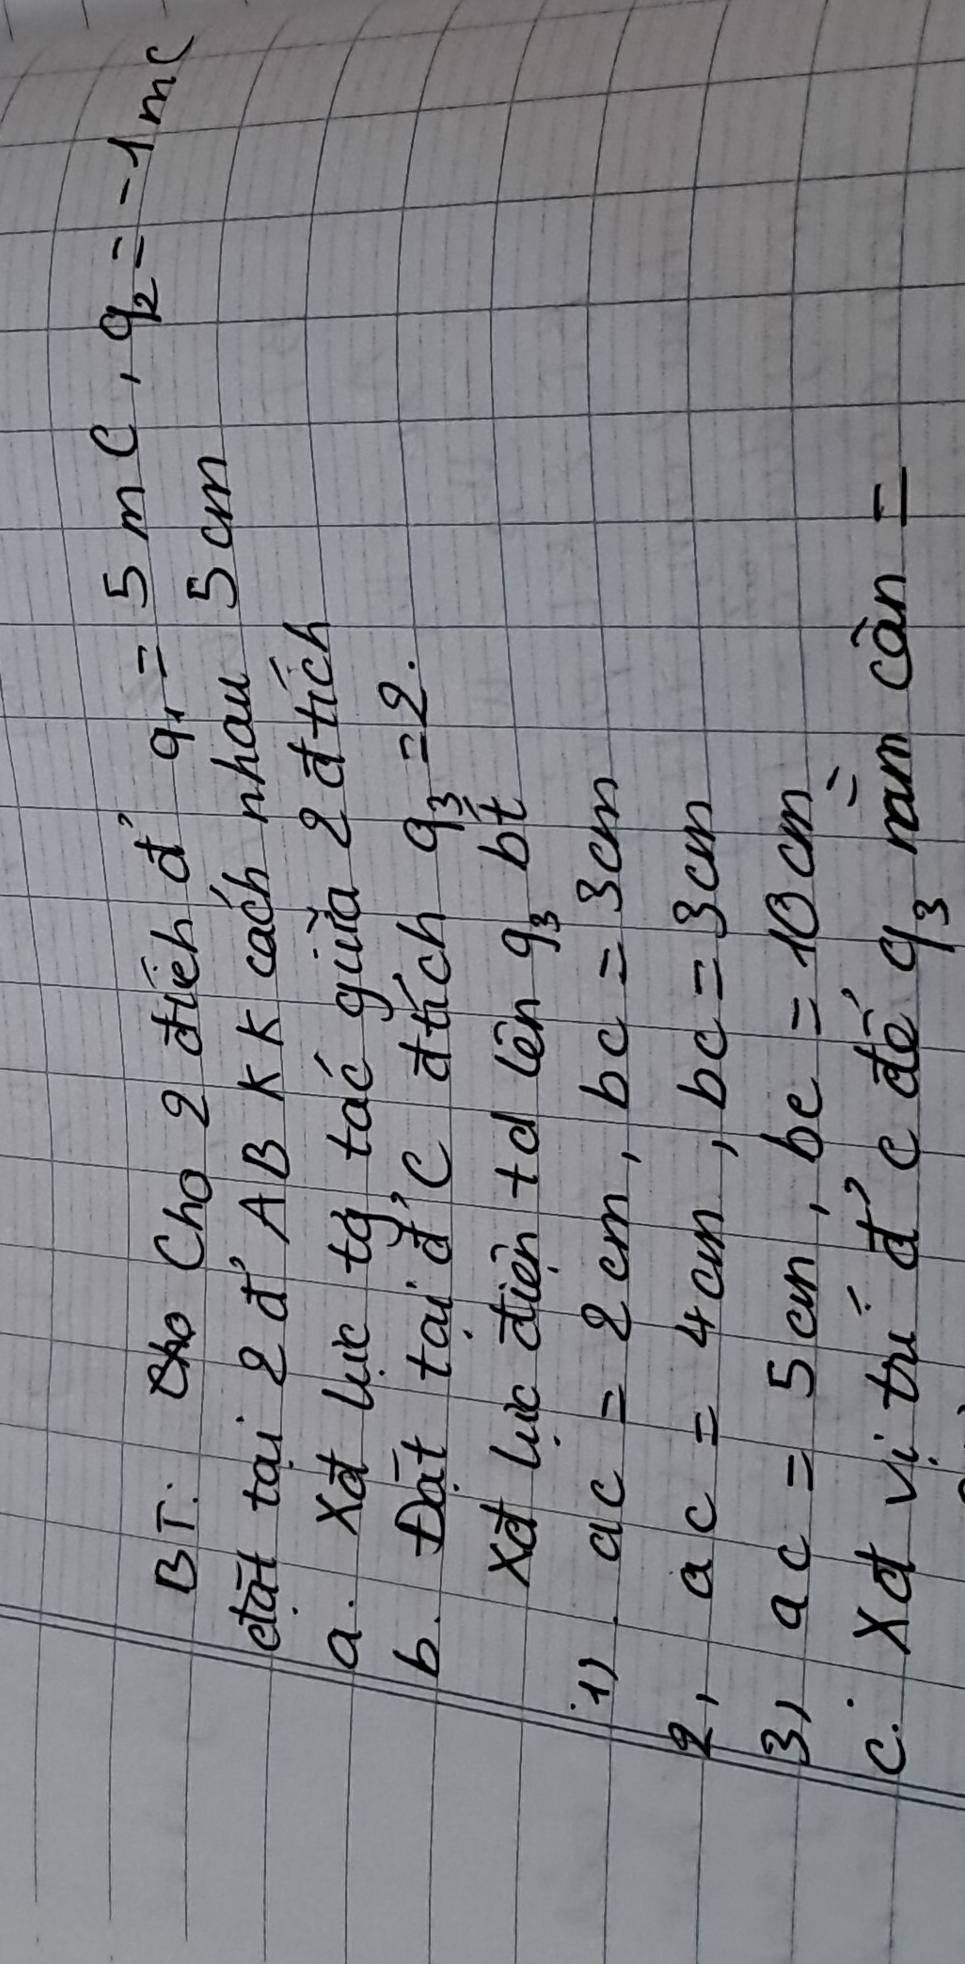 BT: Cho 2 điện đ' q₁ = 5 mC, q₂ = -1 mC
đặt tại 2 đ' AB KK cách nhau 5 cm
a. Xđ lực tg tác giữa 2 đ tích
b. Đặt tại đ' C đtích q₃ = 2.
Xđ lực điện td lên q₃ bt
1) ac = 2 cm, bc = 3 cm
2, ac = 4 cm, bc = 3 cm
3, ac = 5 cm, bc = 10 cm
c. Xđ vị trí đ' c để q₃ nằm cân =